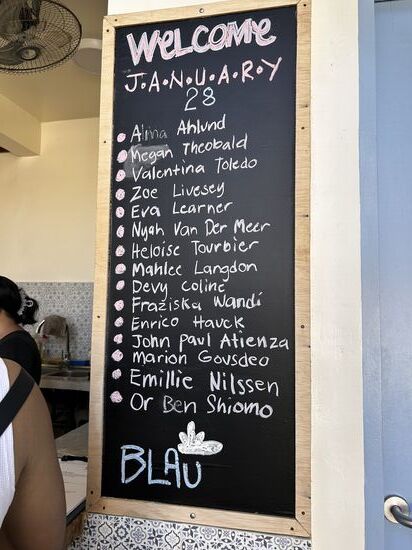 WELCOME
J.A.N.U.A.R.Y
28
Alma Ahlund
Megan Theobald
Valentina Toledo
Zoe Livesey
Eva Learner
Nyah Van Der Meer
Heloise Tourbier
Mahlee Langdon
Devy Coline
Fražiska Wandí
Enrico Hauck
John Paul Atienza
Marion Gousdeo
Emillie Nilssen
Or Ben Shiomo
BLAU